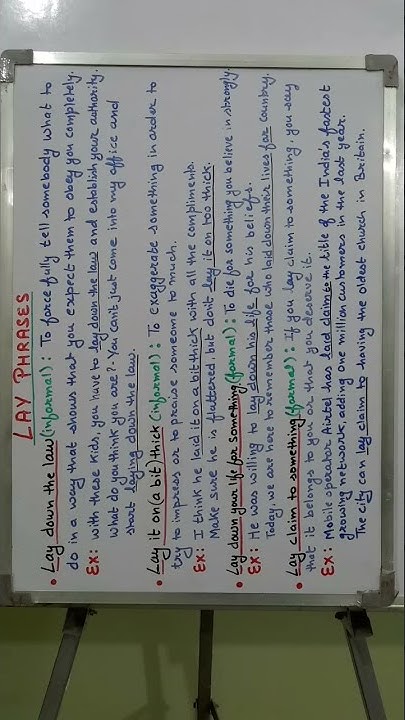 LAY PHRASES
• Lay down the law (informal): To force fully tell somebody what to
do in a way that shows that you expect them to obey you completely.
Ex: with these kids, you have to lay down the law and establish your authority.
what do you think you are? You can't just come into my office and
start laying down the law.
• Lay it on (a bit) thick (informal): To exaggerate something in order to
try to impress or to praise someone to much.
Ex: I think he laid it on a bit thick with all the compliments.
Make sure he is fluttered but don't lay it on too thick.
• Lay down your life for something (formal): To die for something you believe in strongly.
Ex: He was willing to lay down his life for his beliefs.
Today, we are here to remember those who laid down their lives for country.
• Lay claim to something (formal): If you lay claim to something, you say
that it belongs to you or that you deserve it.
Ex: Mobile operator Airtel has laid claim to the title of the India's fastest
growing network, adding one million customers in the last year.
The city can lay claim to having the oldest church in Britain.